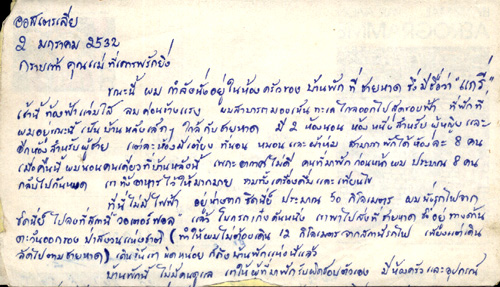 ออสเตรเลีย
2 มกราคม 2532
กราบเท้า คุณแม่ ที่เคารพรักยิ่ง
ขณะนี้ ผม กำลังนั่งอยู่ในห้องครัวของ บ้านพัก ที่ ชายหาด ซึ่งมีชื่อว่า "แกรี่"
เช้านี้ ท้องฟ้าแจ่มใส ลมค่อนข้างแรง ผมสามารถมองเห็นทะเลไกลออกไปสุดขอบฟ้า ที่พักที่
ผมอยู่ขณะนี้ เป็นบ้านหลังเล็กๆ ใกล้กับชายหาด มี 2 ห้องนอน ห้องหนึ่งสำหรับผู้หญิง และ
อีกห้องสำหรับผู้ชาย แต่ละห้องมีเตียง ที่นอน หมอน และผ้าห่ม สามารถพักได้ห้องละ 8 คน
เมื่อคืนนี้ ผมนอนคนเดียวที่บ้านหลังนี้ เพราะอากาศไม่ดี คนที่มาพักก่อนหน้าผม ประมาณ 8 คน
กลับไปกันหมด เขาทิ้งอาหารไว้ให้มากมาย รวมทั้งเครื่องดื่มและเทียนไข
ที่นี่ไม่มีไฟฟ้า อยู่ห่างจาก ซิดนีย์ ประมาณ 50 กิโลเมตร ผมนั่งรถไฟจาก
ซิดนีย์ ไปลงที่สถานี "วอเตอร์ฟอล" แล้ว โบกรถเก๋งคันหนึ่ง เขาพาไปส่งที่ชายหาด ซึ่งอยู่ทางด้าน
ตะวันออกของ ป่าสงวนแห่งชาติ (ทำให้ผมไม่ต้องเดิน 12 กิโลเมตรจากสถานีรถไฟ เพียงแต่เดิน
ลัดไปตามชายหาด) เดินขึ้นเขานิดหน่อย ก็ถึงบ้านพักแห่งนี้แล้ว
บ้านพักนี้ ไม่มีคนดูแล เขาให้ผู้ที่มาพักรับผิดชอบตัวเอง มีห้องครัวและอุปกรณ์